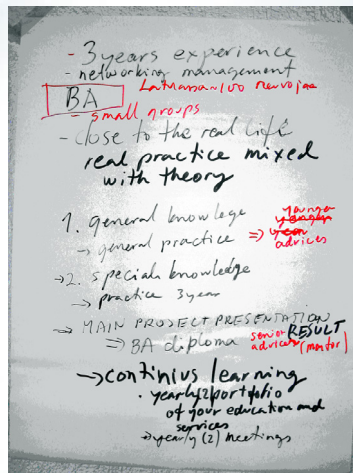 - 3 years experience
- networking management
BA
- small groups
- close to the real life
real practice mixed
with theory
1. general knowlege
→ general practice ⇒ advices
younga
→2. special knowledge
→ practice 3 year
→ MAIN PROJECT PRESENTATION
⇒ BA diploma
senior RESULT
advices (mentor)
→ continius learning
• yearly(2) portfolio
of your education and
services
→ yearly (2) meetings